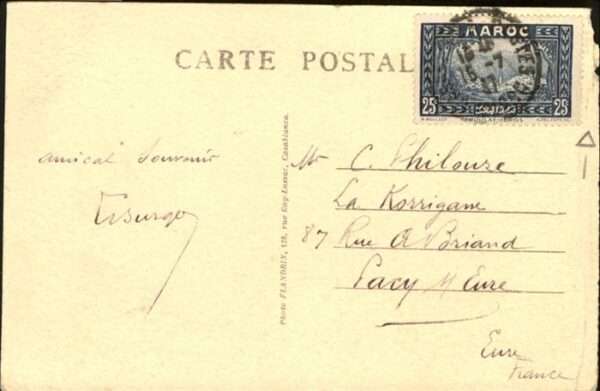 CARTE POSTALE
MAROC
25 25
15 -7
amical souvenir
Mr C. Philouze
La Korrigane
87 Rue A Briand
Pacy s/ Eure
Eure
France
Photo FLANDRIN, 128, rue Guy-Lussac, Casablanca.